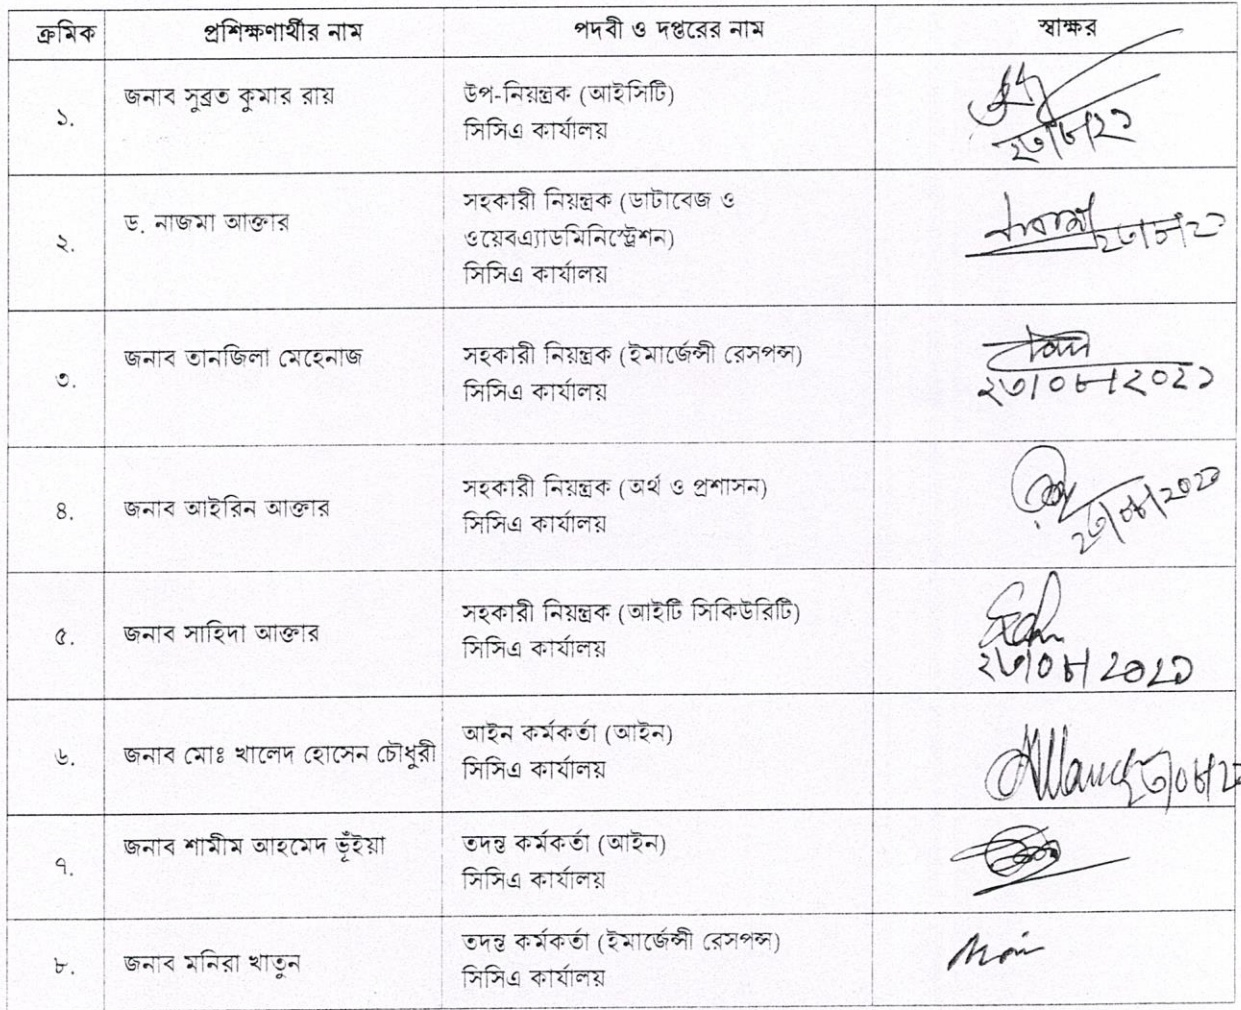 ক্রমিক প্রশিক্ষণার্থীর নাম পদবী ও দপ্তরের নাম স্বাক্ষর
১. জনাব সুব্রত কুমার রায় উপ-নিয়ন্ত্রক (আইসিটি)
সিসিএ কার্যালয়
২৩/৮/২১
২. ড. নাজমা আক্তার সহকারী নিয়ন্ত্রক (ডাটাবেজ ও
ওয়েবএ্যাডমিনিস্ট্রেশন)
সিসিএ কার্যালয়
২৩/৮/২১
৩. জনাব তানজিলা মেহেনাজ সহকারী নিয়ন্ত্রক (ইমার্জেন্সী রেসপন্স)
সিসিএ কার্যালয়
২৩/০৮/২০২১
৪. জনাব আইরিন আক্তার সহকারী নিয়ন্ত্রক (অর্থ ও প্রশাসন)
সিসিএ কার্যালয়
২৩/০৮/২০২১
৫. জনাব সাহিদা আক্তার সহকারী নিয়ন্ত্রক (আইটি সিকিউরিটি)
সিসিএ কার্যালয়
২৩/০৮/২০২১
৬. জনাব মোঃ খালেদ হোসেন চৌধুরী আইন কর্মকর্তা (আইন)
সিসিএ কার্যালয়
৭. জনাব শামীম আহমেদ ভূঁইয়া তদন্ত কর্মকর্তা (আইন)
সিসিএ কার্যালয়
৮. জনাব মনিরা খাতুন তদন্ত কর্মকর্তা (ইমার্জেন্সী রেসপন্স)
সিসিএ কার্যালয়